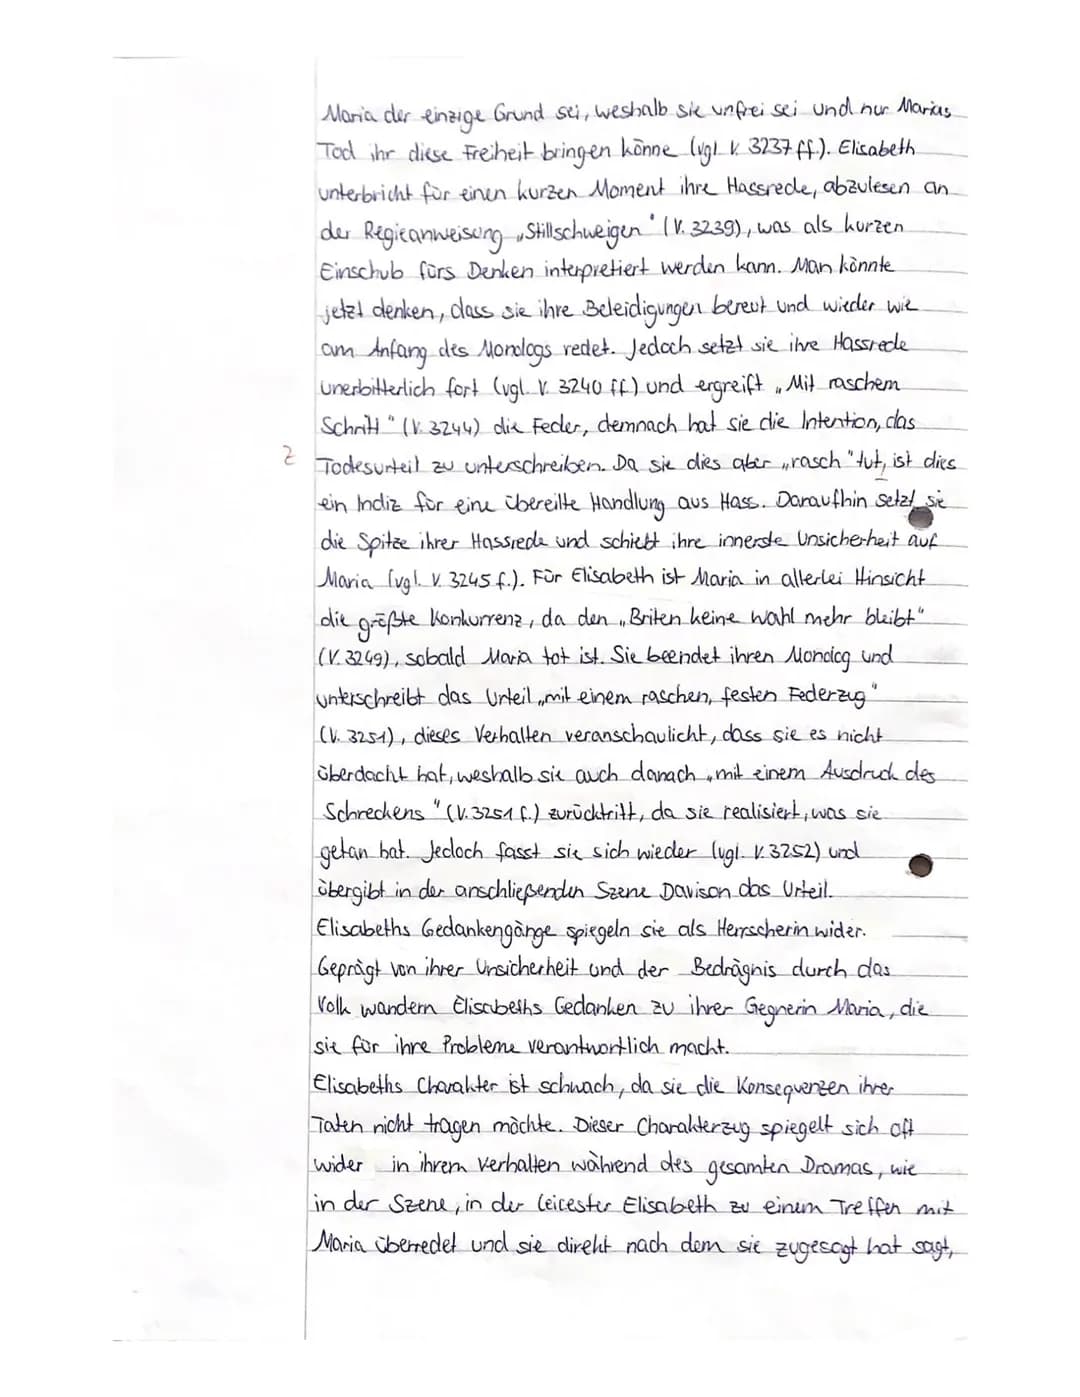 Maria der einzige Grund sei, weshalb sie unfrei sei und nur Marias
Tod ihr diese Freiheit bringen könne (vgl. V. 3237 ff.). Elisabeth
unterbricht für einen kurzen Moment ihre Hassrede, abzulesen an
der Regieanweisung „Stillschweigen" (V. 3239), was als kurzen
Einschub fürs Denken interpretiert werden kann. Man könnte
jetzt denken, dass sie ihre Beleidigungen bereut und wieder wie
am Anfang des Monologs redet. Jedoch setzt sie ihre Hassrede
unerbitterlich fort (vgl. V. 3240 ff.) und ergreift „Mit raschem
Schritt" (V. 3244) die Feder, demnach hat sie die Intention, das
Z Todesurteil zu unterschreiben. Da sie dies aber „rasch" tut, ist dies
ein Indiz für eine übereilte Handlung aus Hass. Daraufhin setzt sie
die Spitze ihrer Hassrede und schiebt ihre innerste Unsicherheit auf
Maria (vgl. V. 3245 f.). Für Elisabeth ist Maria in allerlei Hinsicht
die größte Konkurrenz, da den „Briten keine Wahl mehr bleibt"
(V. 3249), sobald Maria tot ist. Sie beendet ihren Monolog und
unterschreibt das Urteil „mit einem raschen, festen Federzug"
(V. 3251), dieses Verhalten veranschaulicht, dass sie es nicht
überdacht hat, weshalb sie auch danach „mit einem Ausdruck des
Schreckens" (V. 3251 f.) zurücktritt, da sie realisiert, was sie
getan hat. Jedoch fasst sie sich wieder (vgl. V. 3252) und
übergibt in der anschließenden Szene Davison das Urteil.
Elisabeths Gedankengänge spiegeln sie als Herrscherin wider.
Geprägt von ihrer Unsicherheit und der Bedrägnis durch das
Volk wandern Elisabeths Gedanken zu ihrer Gegnerin Maria, die
sie für ihre Probleme verantwortlich macht.
Elisabeths Charakter ist schwach, da sie die Konsequenzen ihrer
Taten nicht tragen möchte. Dieser Charakterzug spiegelt sich oft
wider in ihrem Verhalten während des gesamten Dramas, wie
in der Szene, in der Leicester Elisabeth zu einem Treffen mit
Maria überredet und sie direkt nach dem sie zugesagt hat sagt,